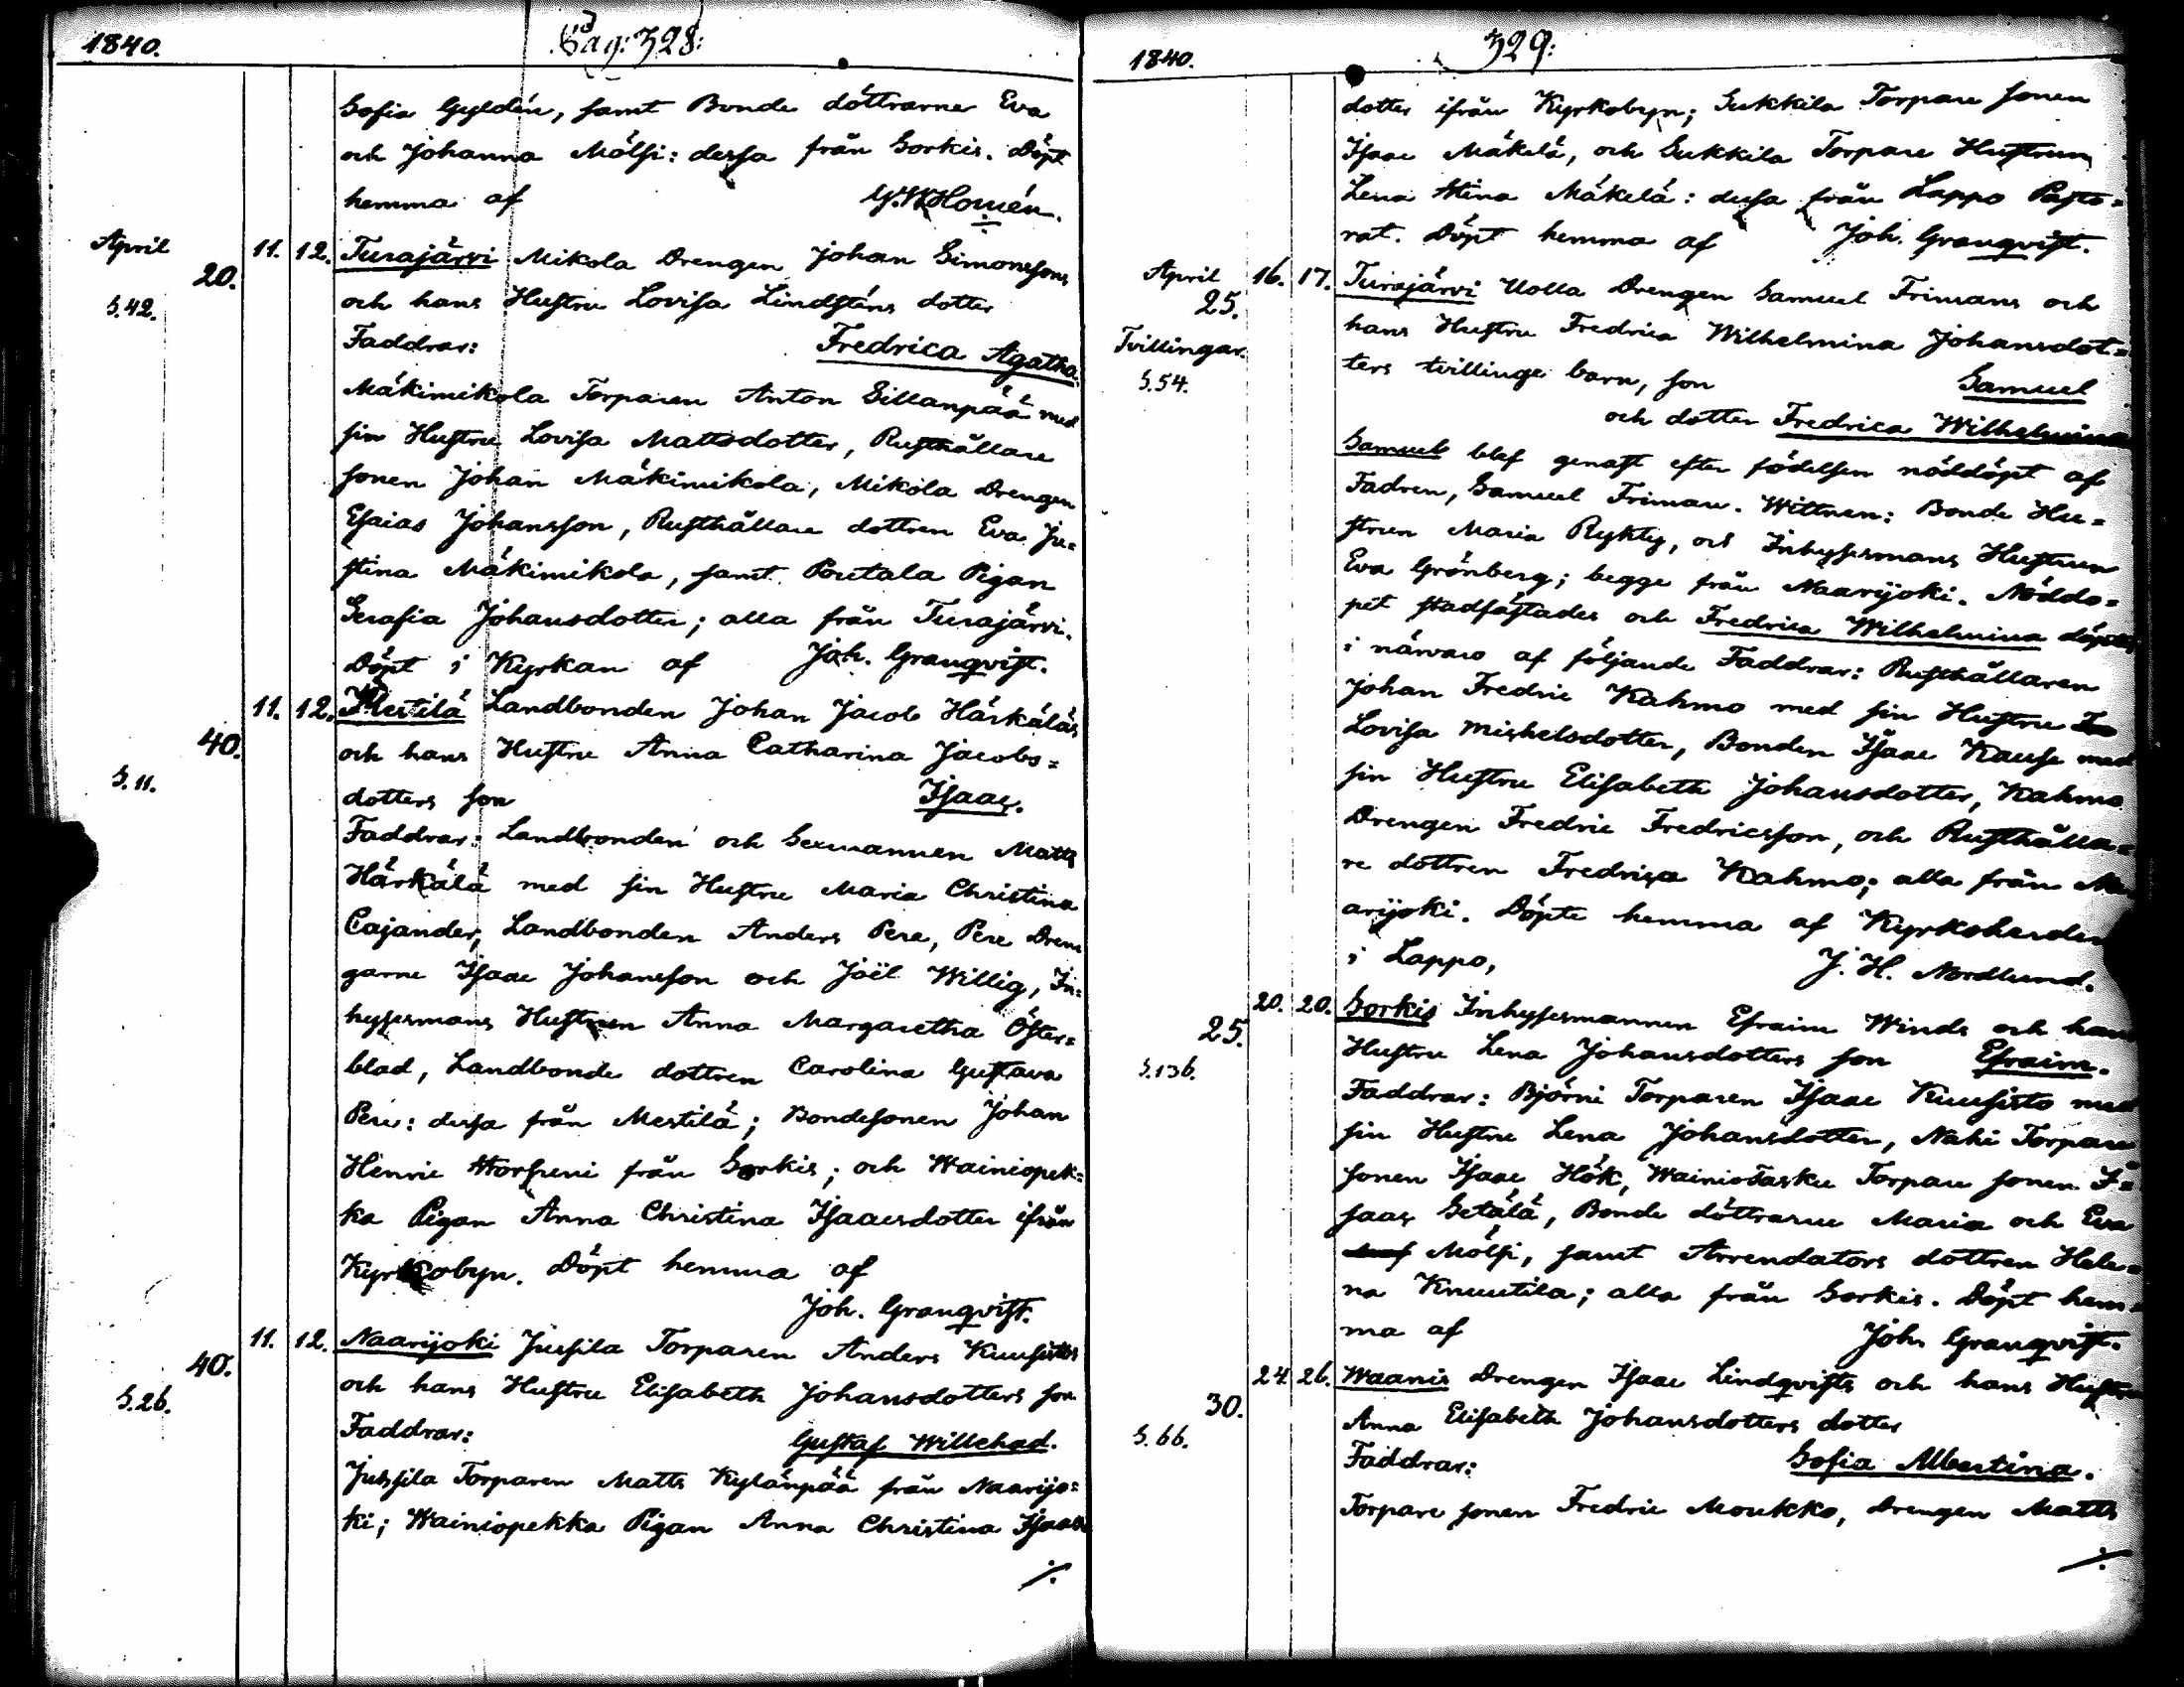 1840. Pag: 328:
Sofia Gyldén, samt Bonde döttrarne Eva
och Johanna Mölsi: dessa från Sorkis. Döpt
hemma af G.W.Homén.
April 20. 11. 12. Turajärvi Mikola Drengen Johan Simonssons
S.42. och hans Hustru Lovisa Lindsténs dotter
Faddrar: Fredrica Agatha.
Mäkimikola Torparen Anton Sillanpää med
sin Hustru Lovisa Mattsdotter, Rusthållare
sonen Johan Mäkimikola, Mikola Drengen
Esaias Johansson, Rusthållare dottren Eva Ju=
stina Mäkimikola, samt Poutala Pigan
Serafia Johansdotter; alla från Turajärvi.
Döpt i Kyrkan af Joh. Granqvist.
40. 11. 12. Mestilä Landbonden Johan Jacob Härkäläs
och hans Hustru Anna Catharina Jacobs=
S.11. dotters son Isaac.
Faddrar: Landbonden och Sexmannen Matts
Härkälä med sin Hustru Maria Christina
Cajander, Landbonden Anders Pere, Pere Dren
garne Isaac Johansson och Joël Willig, In=
hysesmans Hustrun Anna Margaretha Öster=
blad, Landbonde dottren Carolina Gustava
Pere: dessa från Mestilä; Bondesonen Johan
Henric från Sorkis; och Wainiopek=
ka Pigan Anna Christina Isaacsdotter ifrån
Kyrkobyn. Döpt hemma af
Joh. Granqvist.
40. 11. 12. Naarijoki Jussila Torparen Anders Kuusistos
S.26. och hans Hustru Elisabeth Johansdotters son
Faddrar: Gustaf Willehad.
Jussila Torparen Matts Kylänpää från Naarijo=
ki; Wainiopekka Pigan Anna Christina Isaacs
./.
1840. 329:
dotter ifrån Kyrkobyn; Sukkila Torpare sonen
Isaac Mäkelä, och Sukkila Torpare Hustrun
Lena Stina Mäkelä: dessa från Lappo Pasto=
rat. Döpt hemma af Joh. Granqvist.
April 25. 16. 17. Turajärvi Uolla Drengen Samuel Frimans och
Tvillingar. hans Hustru Fredrica Wilhelmina Johansdot=
S.54. ters tvillinge barn, son Samuel
och dotter Fredrica Wilhelmina
Samuel blef genast efter födelsen nöddöpt af
Fadren, Samuel Friman. Wittnen: Bonde Hu=
strun Maria Ryktig, och Inhysesmans Hustrun
Eva Grönberg; begge från Naarijoki. Nöddo=
pet stadfästades och Fredrica Wilhelmina döptes
i närvaro af följande Faddrar: Rusthållaren
Johan Fredric Kahmo med sin Hustru
Lovisa Michelsdotter, Bonden Isaac Kause med
sin Hustru Elisabeth Johansdotter, Kahmo
Drengen Fredric Fredricsson, och Rusthålla=
re dottren Fredrica Kahmo; alla från Na
arijoki. Döpte hemma af Kyrkoherden
i Lappo, J. H. Nordlund.
25. 20. 20. Sorkis Inhysesmannen Efraim Winds och hans
S.136. Hustru Lena Johansdotters son Efraim.
Faddrar: Björni Torparen Isaac Kuusisto med
sin Hustru Lena Johansdotter, Nahi Torpare
sonen Isaac Hök, Wainiotasku Torpare sonen I=
saac Setälä, Bonde döttrarne Maria och Eva
Mölsi, samt Arrendators dottren Hele=
na Knuutila; alla från Sorkis. Döpt hem=
ma af Joh. Granqvist.
30. 24. 26. Waanis Drengen Isaac Lindqvists och hans Hustru
S.66. Anna Elisabeth Johansdotters dotter
Faddrar: Sofia Albertina.
Torpare sonen Fredric Moukko, Drengen Matts
./.